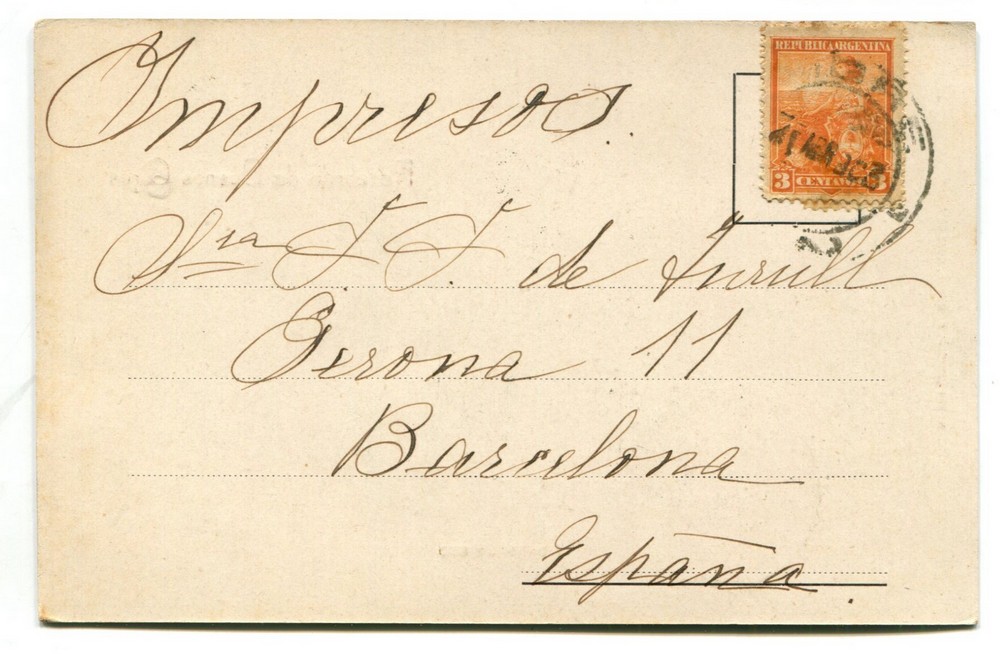 Impresos.
REPUBLICA ARGENTINA
3 CENTAVOS 3
Sra J. J. de Turull
Gerona 11
Barcelona
España.